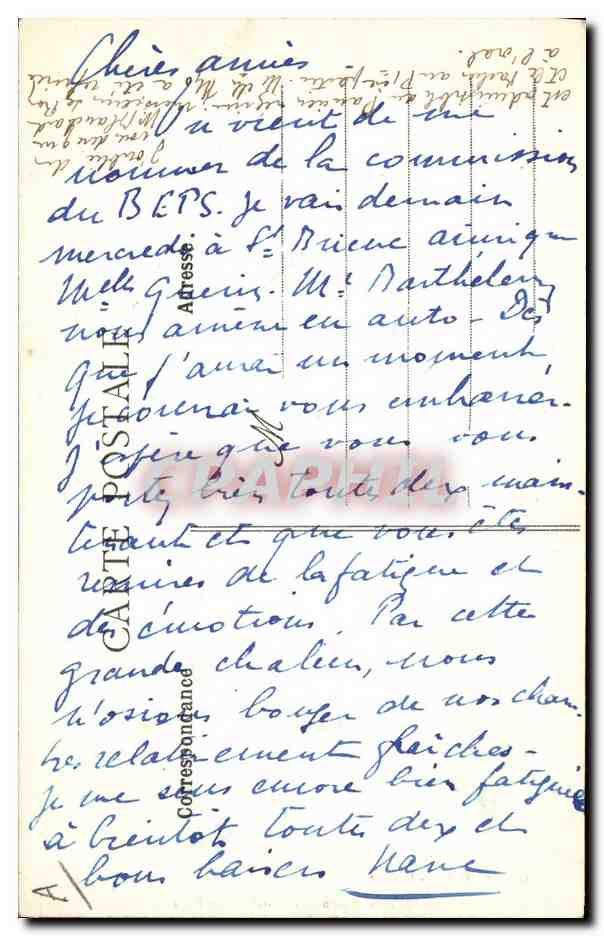 Chères amies
On vient de me
nommer de la commission
du BEPS. Je vais demain
mercredi à St Brieuc ainsi que
Melle Guerin. Mr Barthélemy
nous amène en auto - Dès
que j'aurai un moment
je courrai vous embrasser.
J'espère que vous vous
portez bien toutes deux main-
tenant et que vous êtes
remises de la fatigue et
des émotions. Par cette
grande chaleur, nous
n'osions bouger de nos cham-
bres relativement fraîches -
Je me sens encore bien fatiguée
à bientôt toutes deux et
bons baisers Nane
J'oublie de
vous dire que
est admissible
à l'oral.
CARTE POSTALE
Correspondance
Adresse.
M
CPAPHIL
A